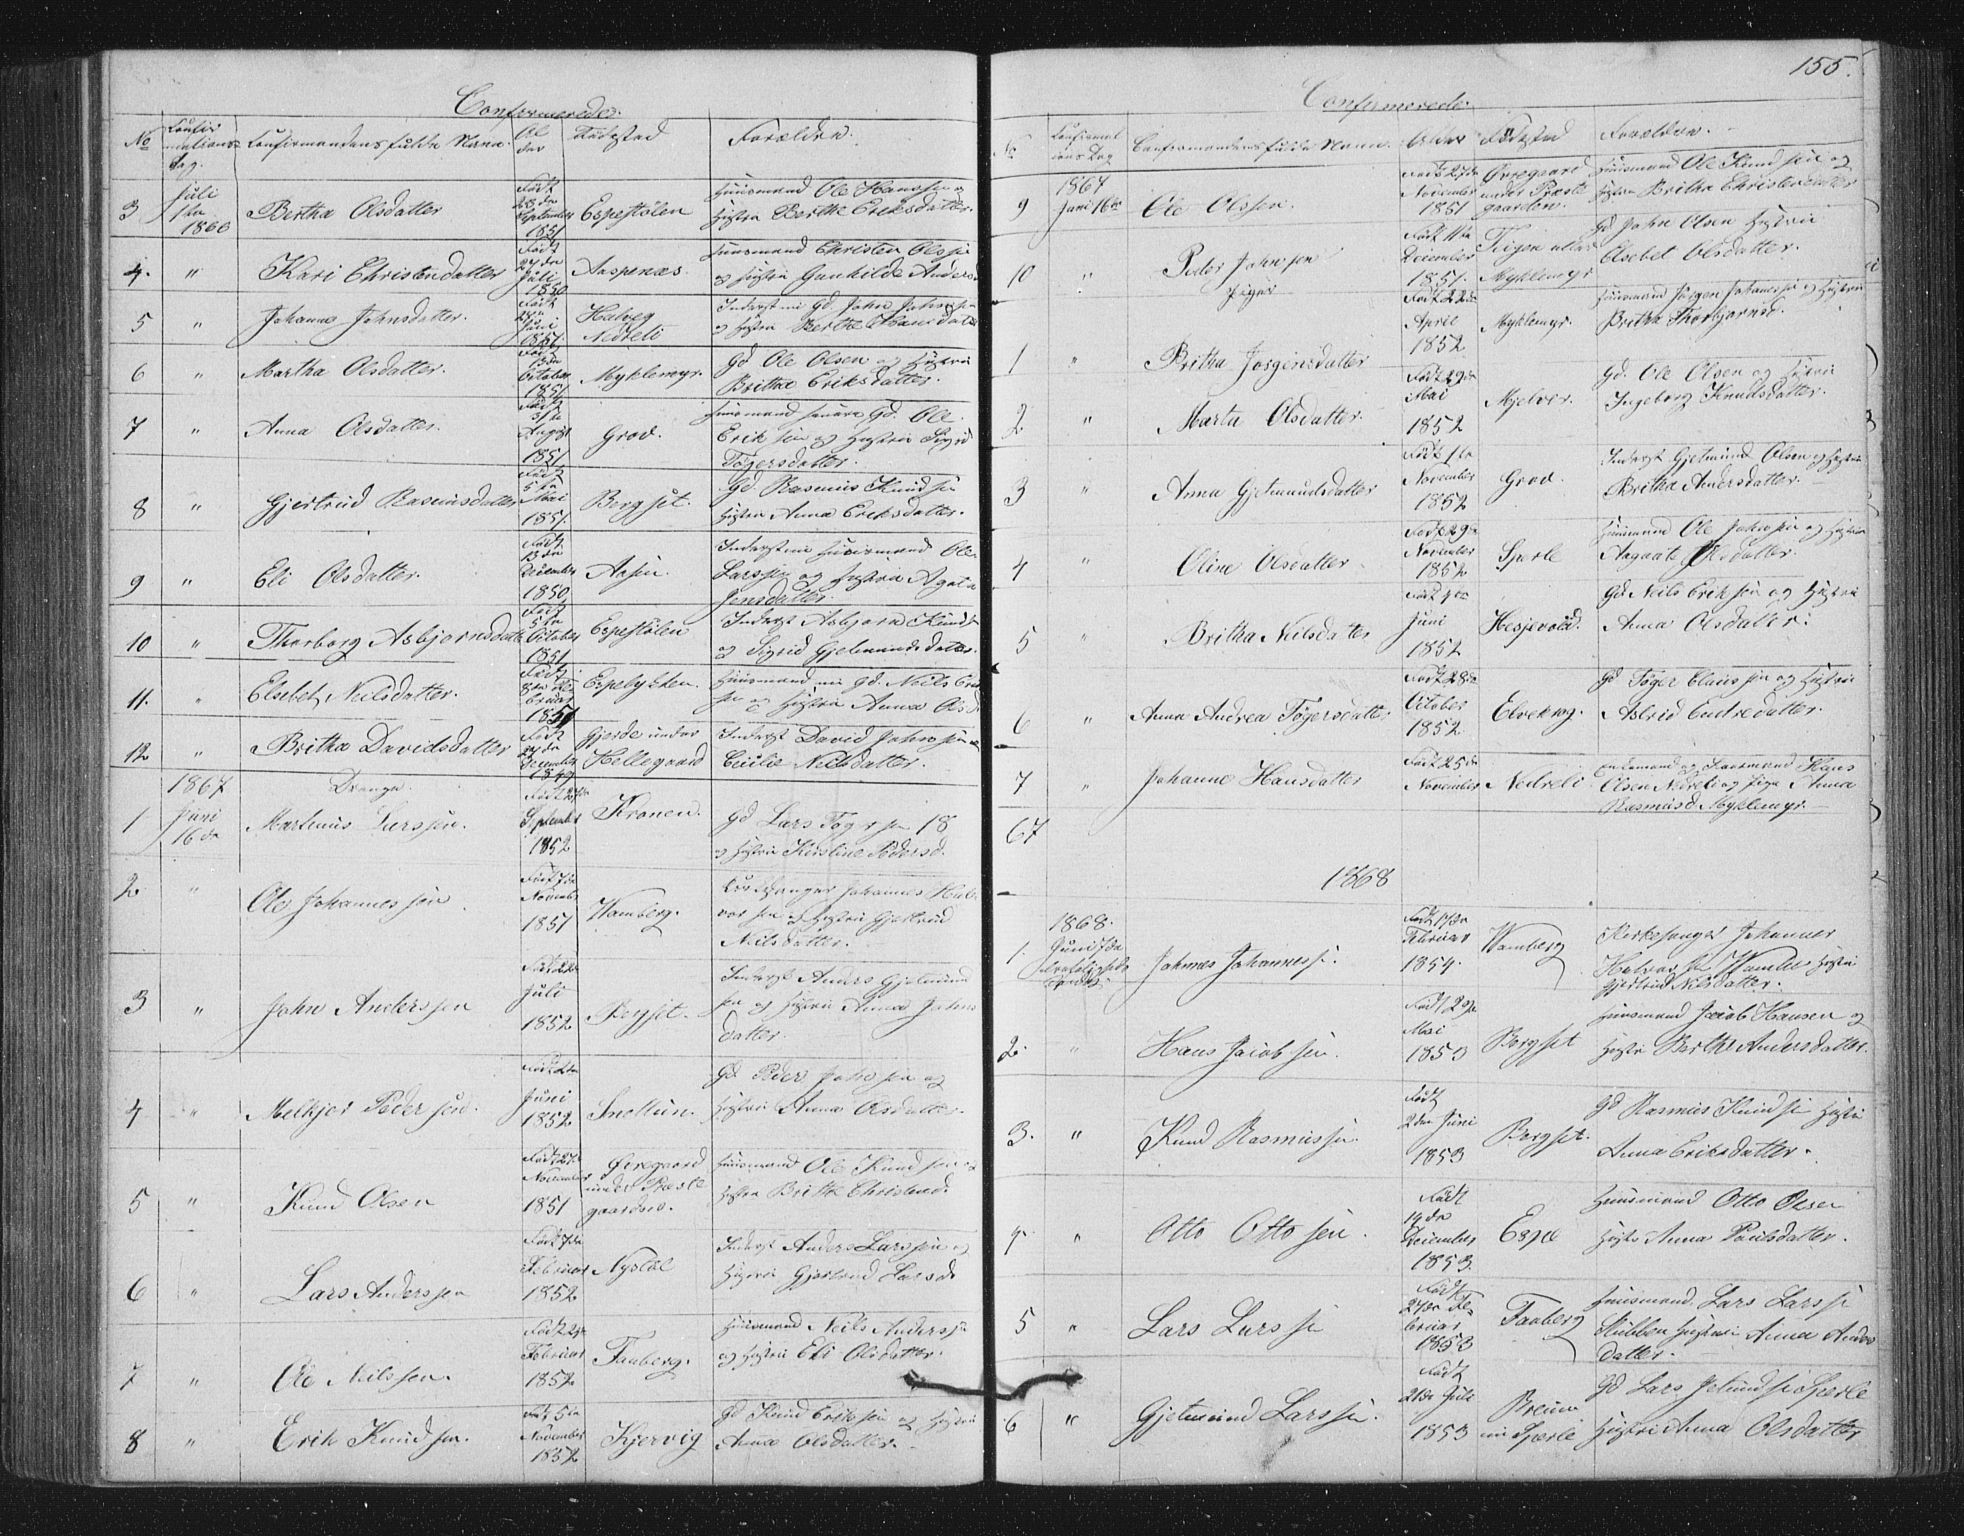 155.
Confirmerede.
No Confirmations Dag. Confirmandens fulde Navn. Alder Födested Forældre.
3 Juli 1ste 1866 Bertha Olsdatter Född 28de September 1851 Espestölen Huusmand Ole Hanssen og Hustru Berthe Eriksdatter.
4. " Kari Christendatter Född 24de Juli 1850 Aaspenæs. Huusmand Christen Olssen og Hustru Gunhilde Anders
5 " Johanne Johnsdatter. Född Juni 1851 Nedreli Gd John Johnssen og Hustru Berthe Hansdatter
6 " Martha Olsdatter. Född 13de October 1851 Myklemyr. Gd Ole Olsen og Hustru Brithe Eriksdatter.
7 " Anna Olsdatter. Född August 1851 Grov. Huusmand Gd. Ole Eriksen og Hustru Sigrid Tögersdatter.
8 " Gjertrud Rasmusdatter Född 5te Mai 1851. Bergset. Gd Rasmus Knudsen Hustru Anna Eriksdatter.
9 " Eli Olsdatter. Född 13de December 1850 Aasen. Huusmand Ole Larssen og Hustru Agata Jensdatter.
10 " Thorborg Asbjornsdatter Född 5te October 1851 Espestölen Inderst Asbjorn Knuds og Sigrid Gjelmundsdatter.
11. " Elsebet Neilsdatter. Född 1851 Espelykken. Huusmand Gd. Neils og Hustru Anna Olsd
12 " Britha Davidsdatter Född 24de December 1849 Gjerde under Hellegaard Inderst David Johnssen Cecilie Neilsdatter.
1867 Drenge.
1 Juni 16de Martinus Larssen. September 1852 Kronen. Gd Lars Tögersen og Hustru Kirstine Pedersd.
2. " Ole Johannessen Född 7de November 1851 Wamberg. Kirkesanger Johannes Halvorsen og Hustru Gjertrud Neilsdatter.
3 " John Anderssen Juli 1852 Bergset. Inderst Anders Gjelmundsen og Hustru Anna Johnsdatter.
4 " Melkjer Pedersen. Juni 1852 Snetun. Gd Peder Johnsen og Hustru Anna Olsdatter.
5 " Knud Olsen Född 27de November 1851 Övregaard under Præstegaarden. Huusmand Ole Knudsen og Hustru Brithe Christend.
6 " Lars Anderssen Född 7de Februar 1852 Nystöl Inderst Anders Larssen og Hustru Gjertrud Larsd
7 " Ole Neilssen. Februar 1852 Faaberg. Huusmand Neils Anderssen og Hustru Eli Olsdatter.
8 " Erik Knudsen. Född 5te November 1852 Kjervig Gd Knud Eriksen og Hustru Anna Olsdatter.
Confirmerede.
No Confirmations Dag Confirmandens fulde Navn. Alder Födested Forældre.
9 1867 Juni 16de Ole Olssen. Född 27de November 1851 Övregaard under Præstegaarden. Huusmand Ole Knudsen og Hustru Britha Christensdatter
10 " Peder Johnssen Född 11te December 1851. Teigen Myklemyr Gd John Olsen Hustru Elsebet Olsdatter.
Piger
1 " Britha Jörgensdatter Född 22de April 1852 Myklemyr. Huusmand Jörgen Johanssen og Hustru Britha Thorbjörnsd.
2 " Marta Olsdatter. Född 29de Mai 1852 Mjelver. Gd. Ole Olsen og Hustru Ingeborg Knudsdatter.
3 " Anna Gjetmundsdatter Född 1te November 1852 Grov. Inderst Gjetmund Olsen og Hustru Britha Andersdatter.
4 " Oline Olsdatter. Född 29de November 1852 Sperle Huusmand Ole Johnssen og Hustru Aagaat Olsdatter.
5 " Britha Neilsdatter Juni 1852 Hesjevold. Gd Neils Eriksen og Hustru Anna Olsdatter.
6 " Anna Andrea Tögersdatter Född 28de October 1852 Elvekrog. Gd Töger Claussen og Hustru Astrid Endredatter.
7 " Johanne Hansdatter Född 25de November Nedreli Hans Olsen Nedreli og Pige Anna Rasmusd. Myklemyr.
67
1868
1. 1868. Juni Johanes Johannessen. Född 17de Februar 1854. Wamberg Kirkesanger Johannes Halvorsen Hustru Gjertrud Nilsdatter.
2. " Hans Jacobsen. Född 29de Mai 1853 Bergset Huusmand Jacob Hansen og Hustru Berthe Andersdatter.
3. " Knud Rasmussen. Född 2den Juni 1853 Bergset. Gd Rasmus Knudsen Hustru Anna Eriksdatter.
4. " Otto Ottosen. Född 14de December 1853. Espe Huusmand Otto Olsen Hustru Anna Paulsdatter.
5 " Lars Larssen Född 24de Februar 1853 Faaberg Huusmand Lars Larssen Stubben Hustru Anna Andersdatter.
6 " Gjetmund Larssen. Född 21de Juli 1853 Sperle Gd Lars Sperle Hustru Anna Olsdatter